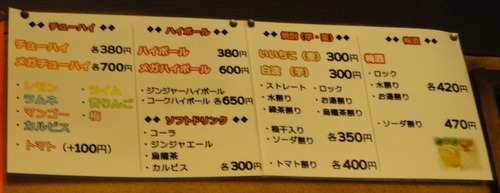 ◆◆ チューハイ ◆◆
チューハイ 各380円
メガチューハイ 各700円
・レモン ・ライム
・ラムネ ・青りんご
・マンゴー ・梅
・カルピス
・トマト (+100円)
◆◆ ハイボール ◆◆
ハイボール 380円
メガハイボール 600円
・ジンジャーハイボール
・コークハイボール 各650円
◆◆ ソフトドリンク ◆◆
・コーラ
・ジンジャエール
・烏龍茶
・カルピス 各300円
◆◆ 焼酎(芋・麦) ◆◆
いいちこ(麦) 300円
白波 (芋) 300円
・ストレート ・ロック
・水割り ・お湯割り
・緑茶割り ・烏龍茶割り
・梅干入り
・ソーダ割り 各350円
・トマト割り 各400円
◆◆ 梅酒 ◆◆
梅酒
・ロック
・水割り
・お湯割り 各420円
・ソーダ割り 470円